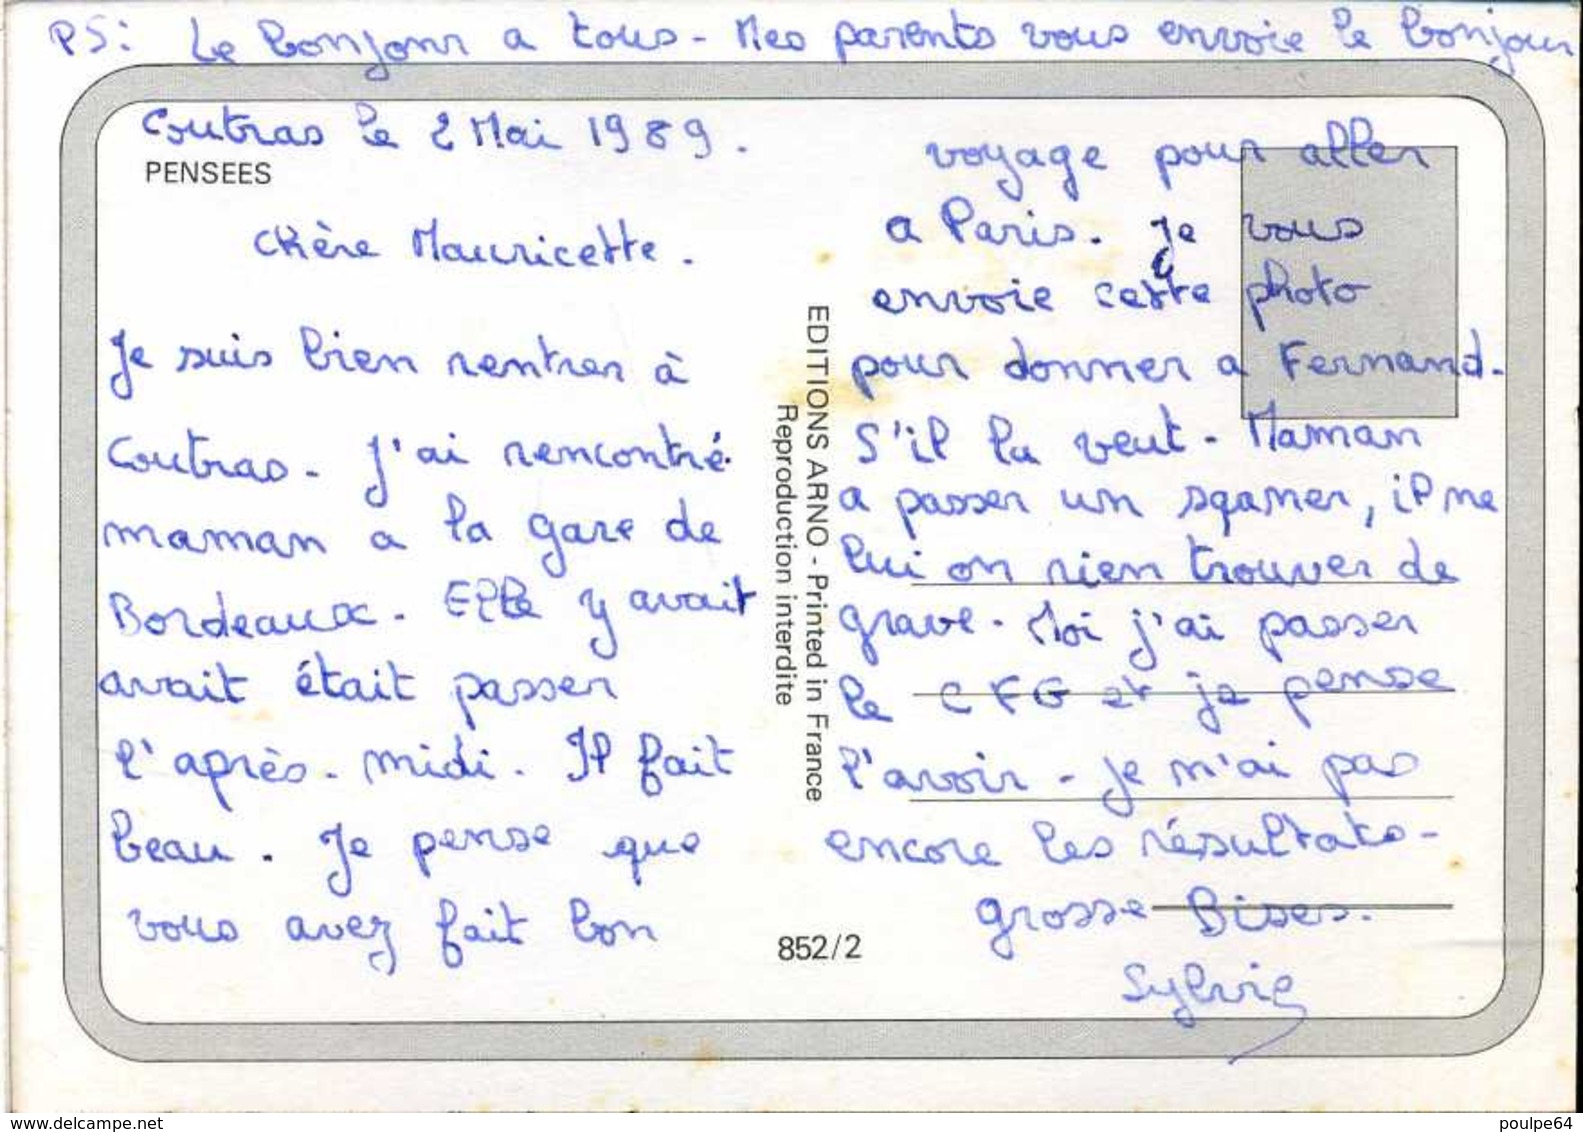 PS: Le bonjour a tous - Mes parents vous envoie le bonjour
Coutras le 2 Mai 1989.
PENSEES
chère Mauricette.
Je suis bien rentrer à
Coutras - J'ai rencontré
maman a la gare de
Bordeaux. Elle y avait
avait était passer
l'après-midi. Il fait
beau. Je pense que
vous avez fait bon
EDITIONS ARNO - Printed in France
Reproduction interdite
852/2
voyage pour aller
a Paris. Je vous
envoie cette photo
pour donner a Fernand-
S'il la veut - Maman
a passer un sqaner, il ne
lui on rien trouver de
grave. Moi j'ai passer
le CFG et je pense
l'avoir - Je n'ai pas
encore les résultats-
grosse Bises.
Sylvie
delcampe.net
poulpe64